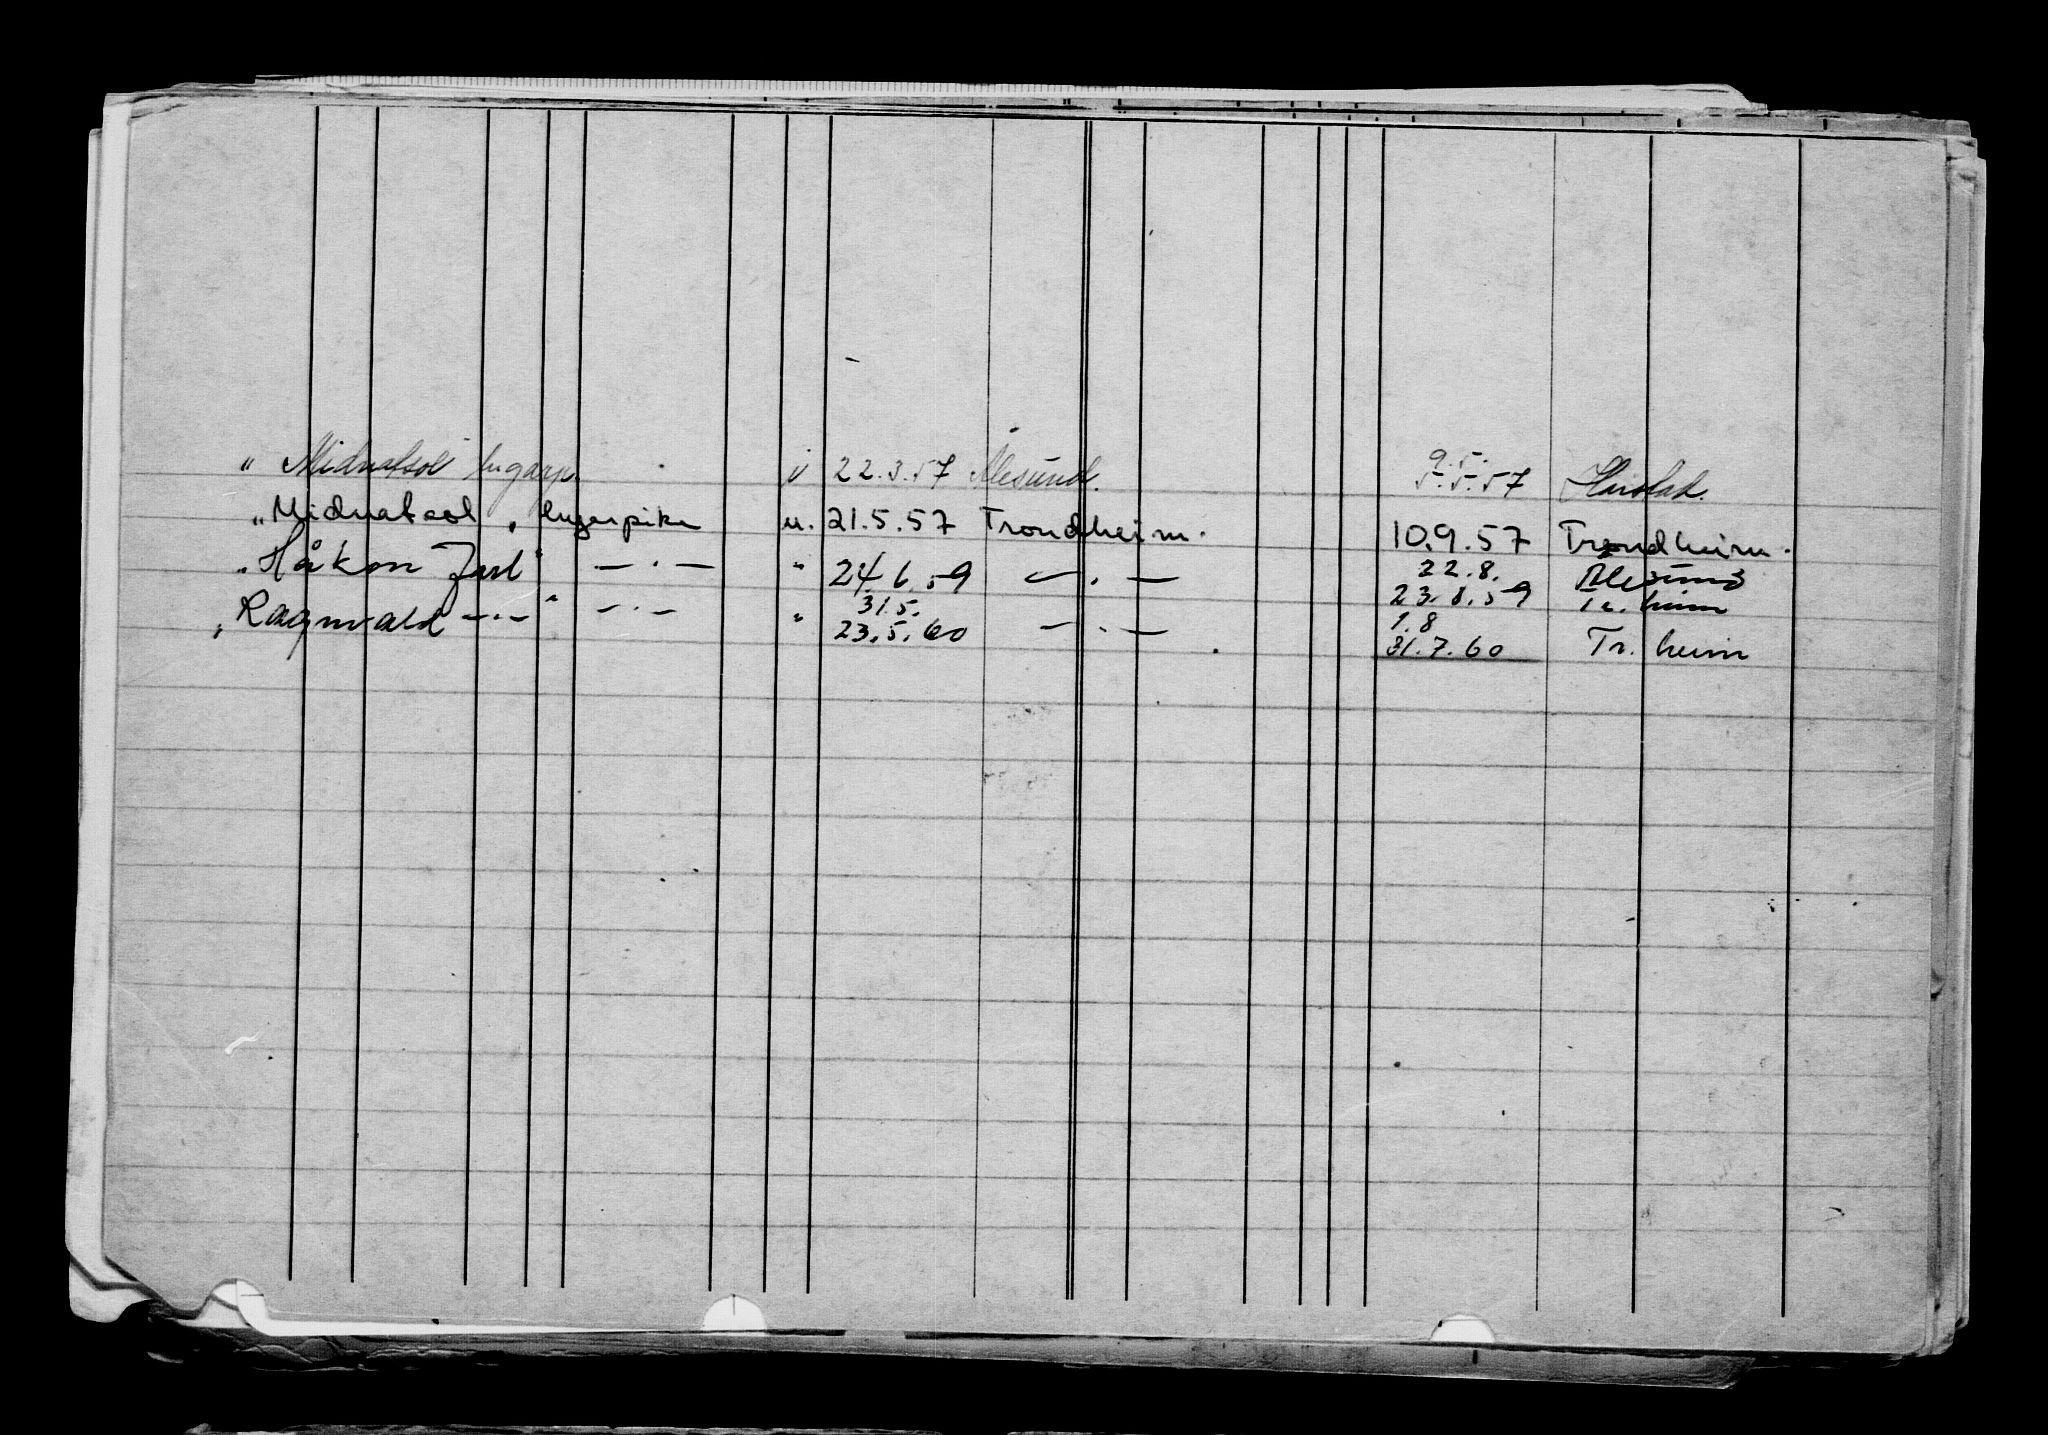 9.5.
" Midnatsol lugarp. u 22.3.57 Ålesund. 5.5.57 Harstad.
"Midnatsol, lugarpike u. 21.5.57 Trondheim. 10.9.57 Trondheim.
22.8. Ålesund
"Håkon Jarl" — . — " 24.6.59 — . — 23.8.59 Tr. heim
31.5. 1.8
"Ragnvald —.—" —.— " 23.5.60 — . — 31.7.60 Tr. heim